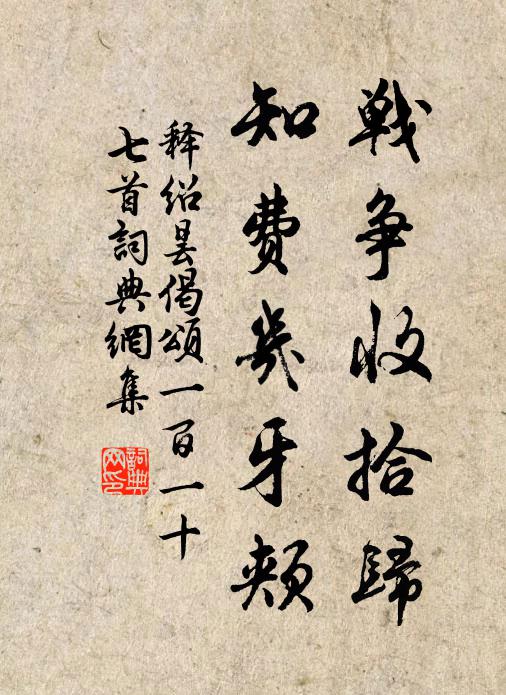 戦争收拾歸
知費幾牙頰
释紹曇偈頌一百一十
七首詞典網集
詞典网印